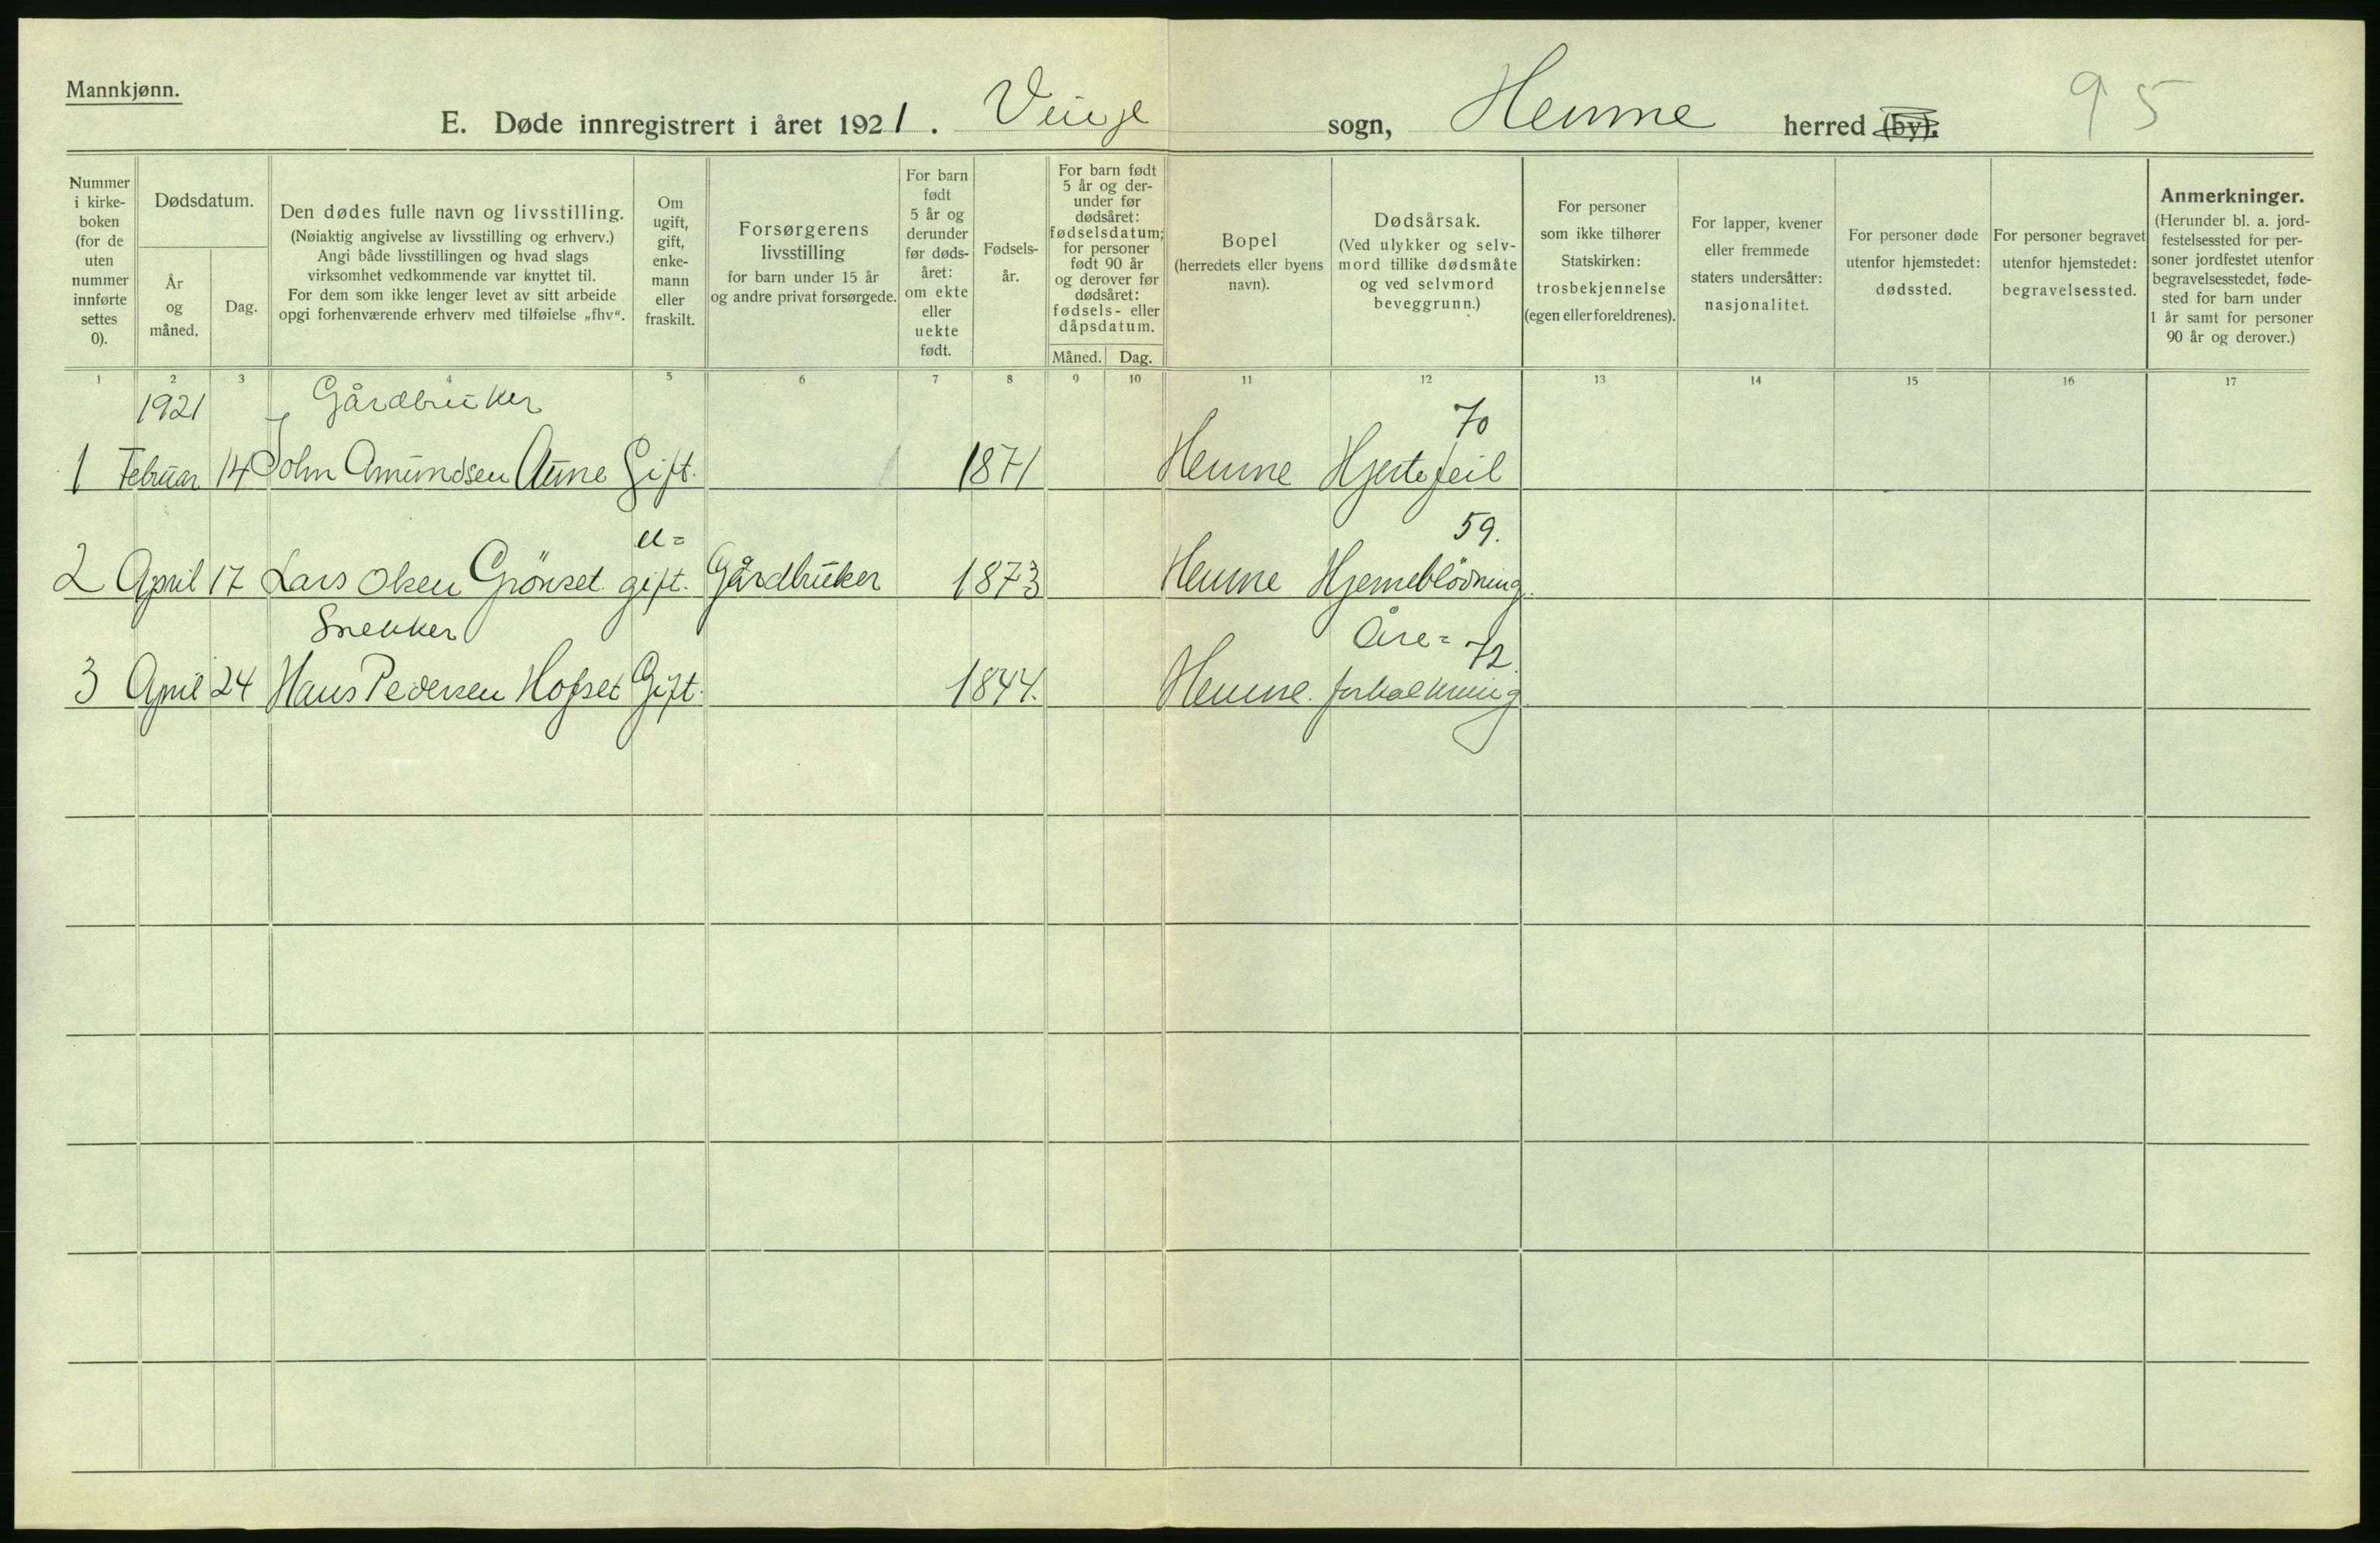 Mannkjønn.
E. Døde innregistrert i året 1921. Vinje sogn, Hemne herred (by).
95
Nummer i kirke-boken (for de uten nummer innførte settes 0).
Dødsdatum.
År og måned.
Dag.
Den dødes fulle navn og livsstilling.
(Nøiaktig angivelse av livsstilling og erhverv.)
Angi både livsstillingen og hvad slags
virksomhet vedkommende var knyttet til.
For dem som ikke lenger levet av sitt arbeide
opgi forhenværende erhverv med tilføielse „fhv“.
Om ugift, gift, enke-mann eller fraskilt.
Forsørgerens
livsstilling
for barn under 15 år
og andre privat forsørgede.
For barn født 5 år og derunder før døds-året: om ekte eller uekte født.
Fødsels-år.
For barn født 5 år og der-under før dødsåret: fødselsdatum; for personer født 90 år og derover før dødsåret: fødsels- eller dåpsdatum.
Måned.
Dag.
Bopel
(herredets eller byens
navn).
Dødsårsak.
(Ved ulykker og selv-
mord tillike dødsmåte
og ved selvmord
beveggrunn.)
For personer
som ikke tilhører
Statskirken:
trosbekjennelse
(egen eller foreldrenes).
For lapper, kvener
eller fremmede
staters undersåtter:
nasjonalitet.
For personer døde
utenfor hjemstedet:
dødssted.
For personer begravet
utenfor hjemstedet:
begravelsessted.
Anmerkninger.
(Herunder bl. a. jord-
festelsessted for per-
soner jordfestet utenfor
begravelsesstedet, føde-
sted for barn under
1 år samt for personer
90 år og derover.)
1 2 3 4 5 6 7 8 9 10 11 12 13 14 15 16 17
1921 Gårdbruker 70
1 Februar 14 John Amundsen Aune Gift. 1871 Hemne Hjertefeil
u= 59.
2 April 17 Lars Olsen Grönset gift. Gårdbruker 1873 Hemne Hjerneblödning.
Snekker Åre= 72.
3 April 24 Hans Pedersen Hofset Gift. 1844. Hemne. forkalkning